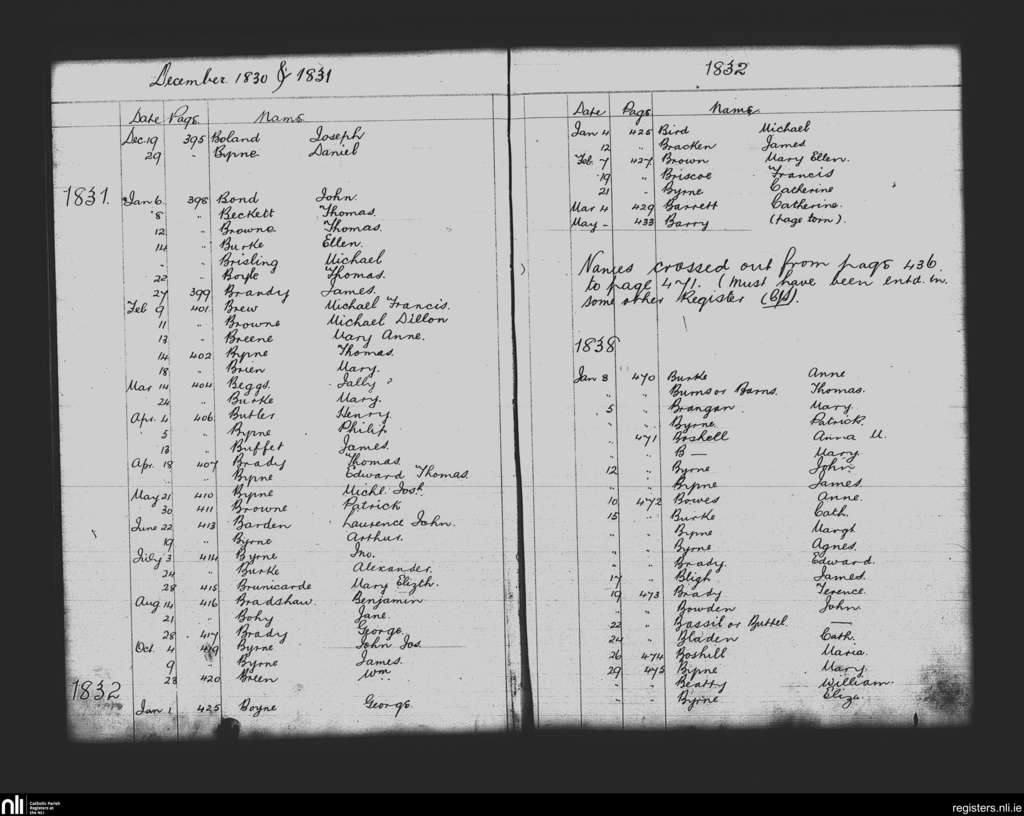 December 1830 & 1831
Date Page Name
Dec. 19 395 Boland Joseph
29 " Byrne Daniel
1831. Jan 6. 398 Bond John.
8 " Beckett Thomas.
12 - Browne Thomas.
14 " Burke Ellen.
- - Brisling Michael
22 - Boyle Thomas.
27 399 Brandy James.
Feb 9 401 Brew Michael Francis.
11 " Browne Michael Dillon
13 - Breene Mary Anne.
14 402 Byrne Thomas.
18 " Brien Mary.
Mar 14 404 Beggs. Jally ?
24 " Burke Mary.
Apr. 4 406 Butler Henry.
5 " Byrne Philip
13 " Buffet James.
Apr. 18 407 Brady Thomas.
" " Byrne Edward Thomas.
May 21 410 Byrne Michl. Josh.
30 411 Browne Patrick
June 22 413 Barden Laurence John.
19 " Byrne Arthur.
July 3 414 Byrne Jno.
24 " Burke Alexander.
28 415 Brunicarde Mary Elizth.
Aug 14 416 Bradshaw. Benjamin
21 " Bohy Jane.
28 417 Brady George.
Oct. 4 419 Byrne John Jos.
9 " Byrne James.
28 420 Breen Wm
1832
Jan 1 425 Boyne George
1832
Date Page Name
Jan 4 425 Bird Michael
12 " Bracken James
Feb. 7 427 Brown Mary Ellen.
19 " Briscoe Francis
21 - Byrne Catherine
Mar 4 429 Barrett Catherine.
May - 433 Barry (page torn).
Names crossed out from page 436.
to page 471. (Must have been entd. in.
some other Register
1838
Jan 8 470 Burke Anne
" " Burns or Barns. Thomas.
5 " Brangan. Mary.
" " Byrne. Patrick.
" 471 Boshell Anna M.
" " B — Mary
12 " Byrne John
" " Byrne James.
10 472 Bowes Anne.
15 " Burke Cath.
" " Byrne Margt
" " Byrne Agnes.
" " Brady. Edward.
17 " Bligh James.
19 473 Brady Terence.
" " Bowden John
22 " Bassil or Buttel. —
24 " Bladen Cath.
26 474 Boshill Maria.
29 475 Byrne Mary
- - Beatty William.
- - Byrne Eliza.
nli Catholic Parish
Registers at
the NLI
registers.nli.ie